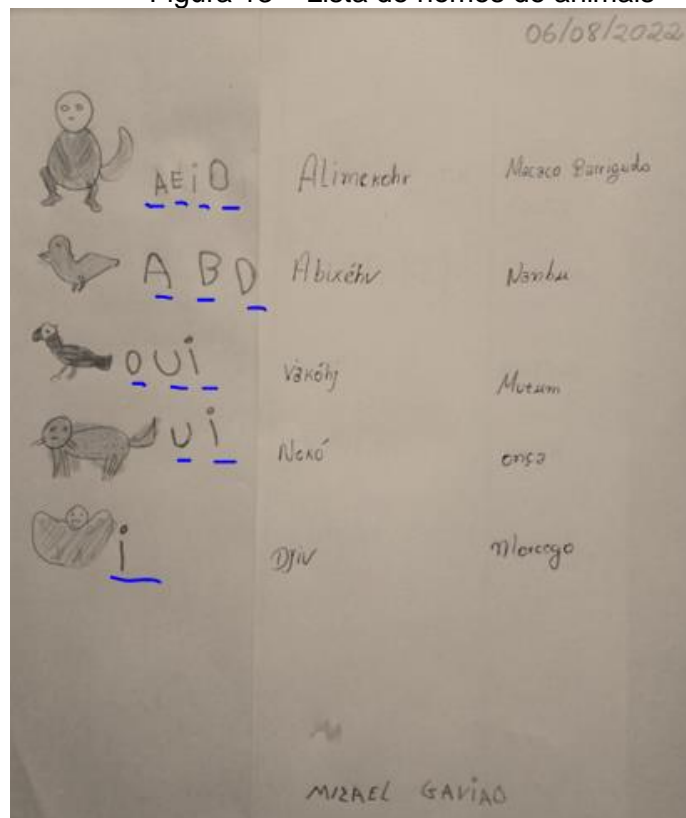 Figura 18 – Lista de nomes de animais
06/08/2022
AEiO Alimekohr Macaco Barrigudo
A B D Abixéhv Nambu
OUi Vàkóhj Mutum
Ui Nekó onça
i Djiv Morcego
MIZAEL GAVIÃO